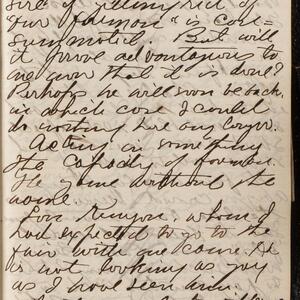 sire of getting rid of
our "Harmon" is con-
summated. But will
it prove advantageous to
me now that it is done?
Perhaps he will soon be back,
in which case I could
do nothing here any longer.
Acting in something
the capacity of foreman.
The game without the
name.
Lon Kenyon, whom I
had expected to go to the
fair with me came. He
is not looking as gay
as I have seen him.